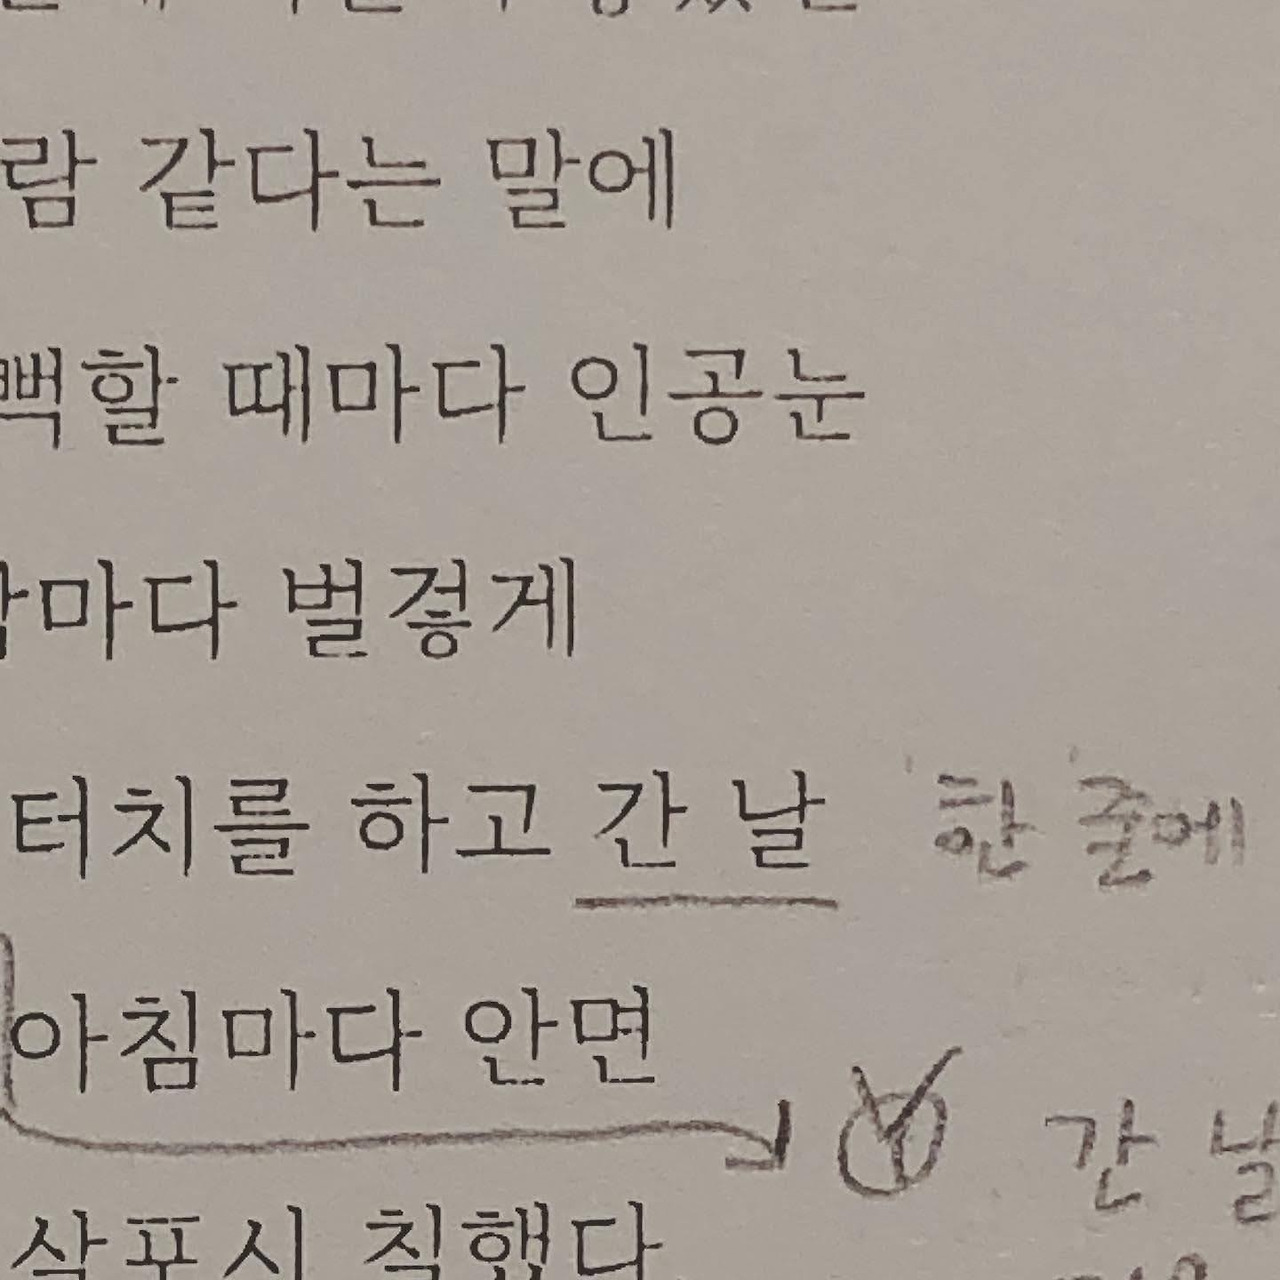 람 같다는 말에
뻑할 때마다 인공눈
마다 벌겋게
터치를 하고 간 날 한 줄에
아침마다 안면
간 날
살포시 칙했다